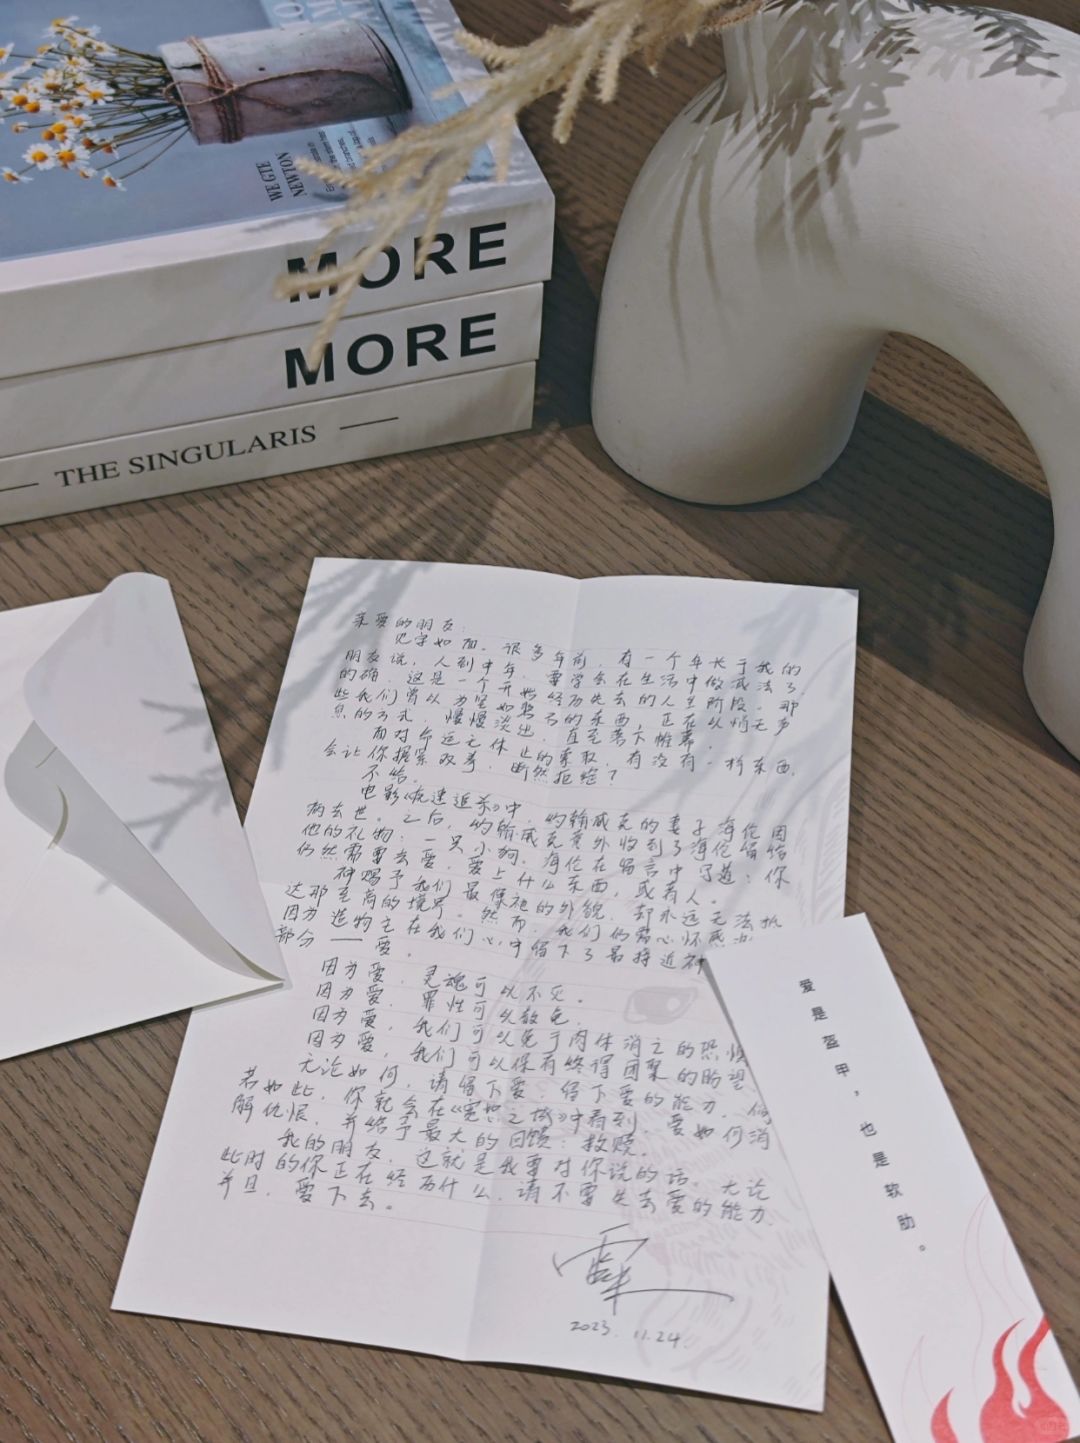 WE GTE
NEWTON
MORE
MORE
THE SINGULARIS
亲爱的朋友:
见字如面。很多年前,有一个年长于我的
朋友说,人到中年,要学会在生活中做减法了。
的确,这是一个开始经历失去的人生阶段。那
些我们曾以为坚如磐石的东西,正在以悄无声
息的方式,慢慢淡出,直至落下帷幕。
面对命运无休止的索取,有没有一样东西,
会让你握紧双拳,断然拒绝?
不给。
电影《疾速追杀》中,约翰威克的妻子海伦因
病去世。之后,约翰威克意外收到了海伦留给
他的礼物:一只小狗。海伦在留言中写道:你
仍然需要去爱,爱上什么东西,或有人。
神赐予我们最像祂的外貌,却永远无法抵
达那至高的境界。然而,我们仍需心怀感
因为造物主在我们心中留下了最接近神
部分——爱。
因为爱,灵魂可以不灭。
因为爱,罪性可以赦免。
因为爱,我们可以免于肉体消亡的恐惧
因为爱,我们可以保有终得团聚的盼望
无论如何,请留下爱,留下爱的能力。倘
若如此,你就会在《冤恕之城》中看到,爱如何消
解仇恨,并给予最大的回馈:救赎。
我的朋友,这就是我要对你说的话。无论
此时的你正在经历什么,请不要失去爱的能力.
并且,爱下去。
2023.11.24.
爱是盔甲,也是软肋。